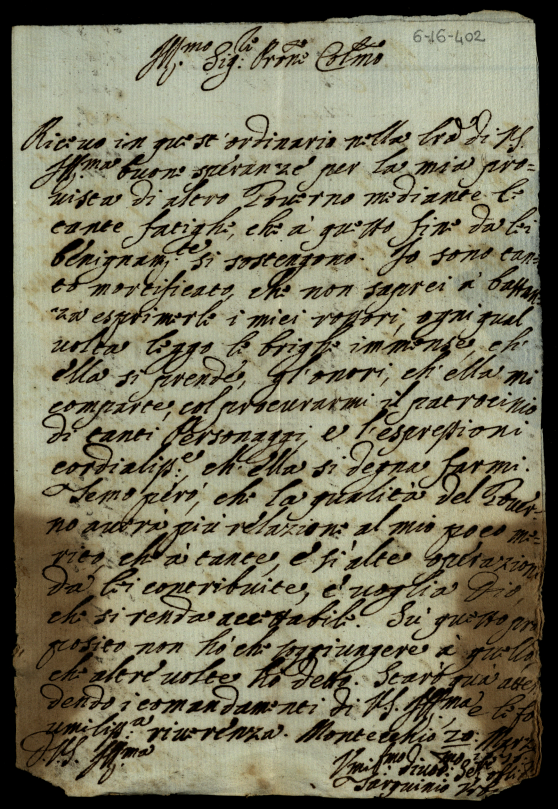 6-16-402
Ill.mo Sig.re Pron.e Col.mo
Riceuo in quest'ordinario nella lr̃a di V.S.
Ill.ma buone speranze per la mia pro-
uista di altro Gouerno mediante le
tante fatighe, che à questo fine da lei
benignam.te si sostengono. Io sono tan-
to mortificato, che non saprei à bastan-
za esprimerle i miei rossori, ogni qual
uolta leggo le brighe immense, ch'
ella si prende, gl'onori, ch'ella mi
comparte, col procurarmi il patrocinio
di tanti Personaggi, e l'espressioni
cordialiss.e, ch'ella si degna farmi.
Temo però, che la qualità del Gouer-
no aurà più relazione al mio poco me-
rito, che à tante, e sì alte operazioni
da lei contribuite, e uoglia Dio,
che si renda accettabile. Sù questo pro-
posito non hò che soggiungere à quello,
che altre uolte hò detto. Starò quà atten-
dendo i comandamenti di V.S. Ill.ma, e le fo
umiliss.a riuerenza. Montecchio 20. Marzo
Di V.S. Ill.ma
Umil.mo Diuot.mo
Tarquinio